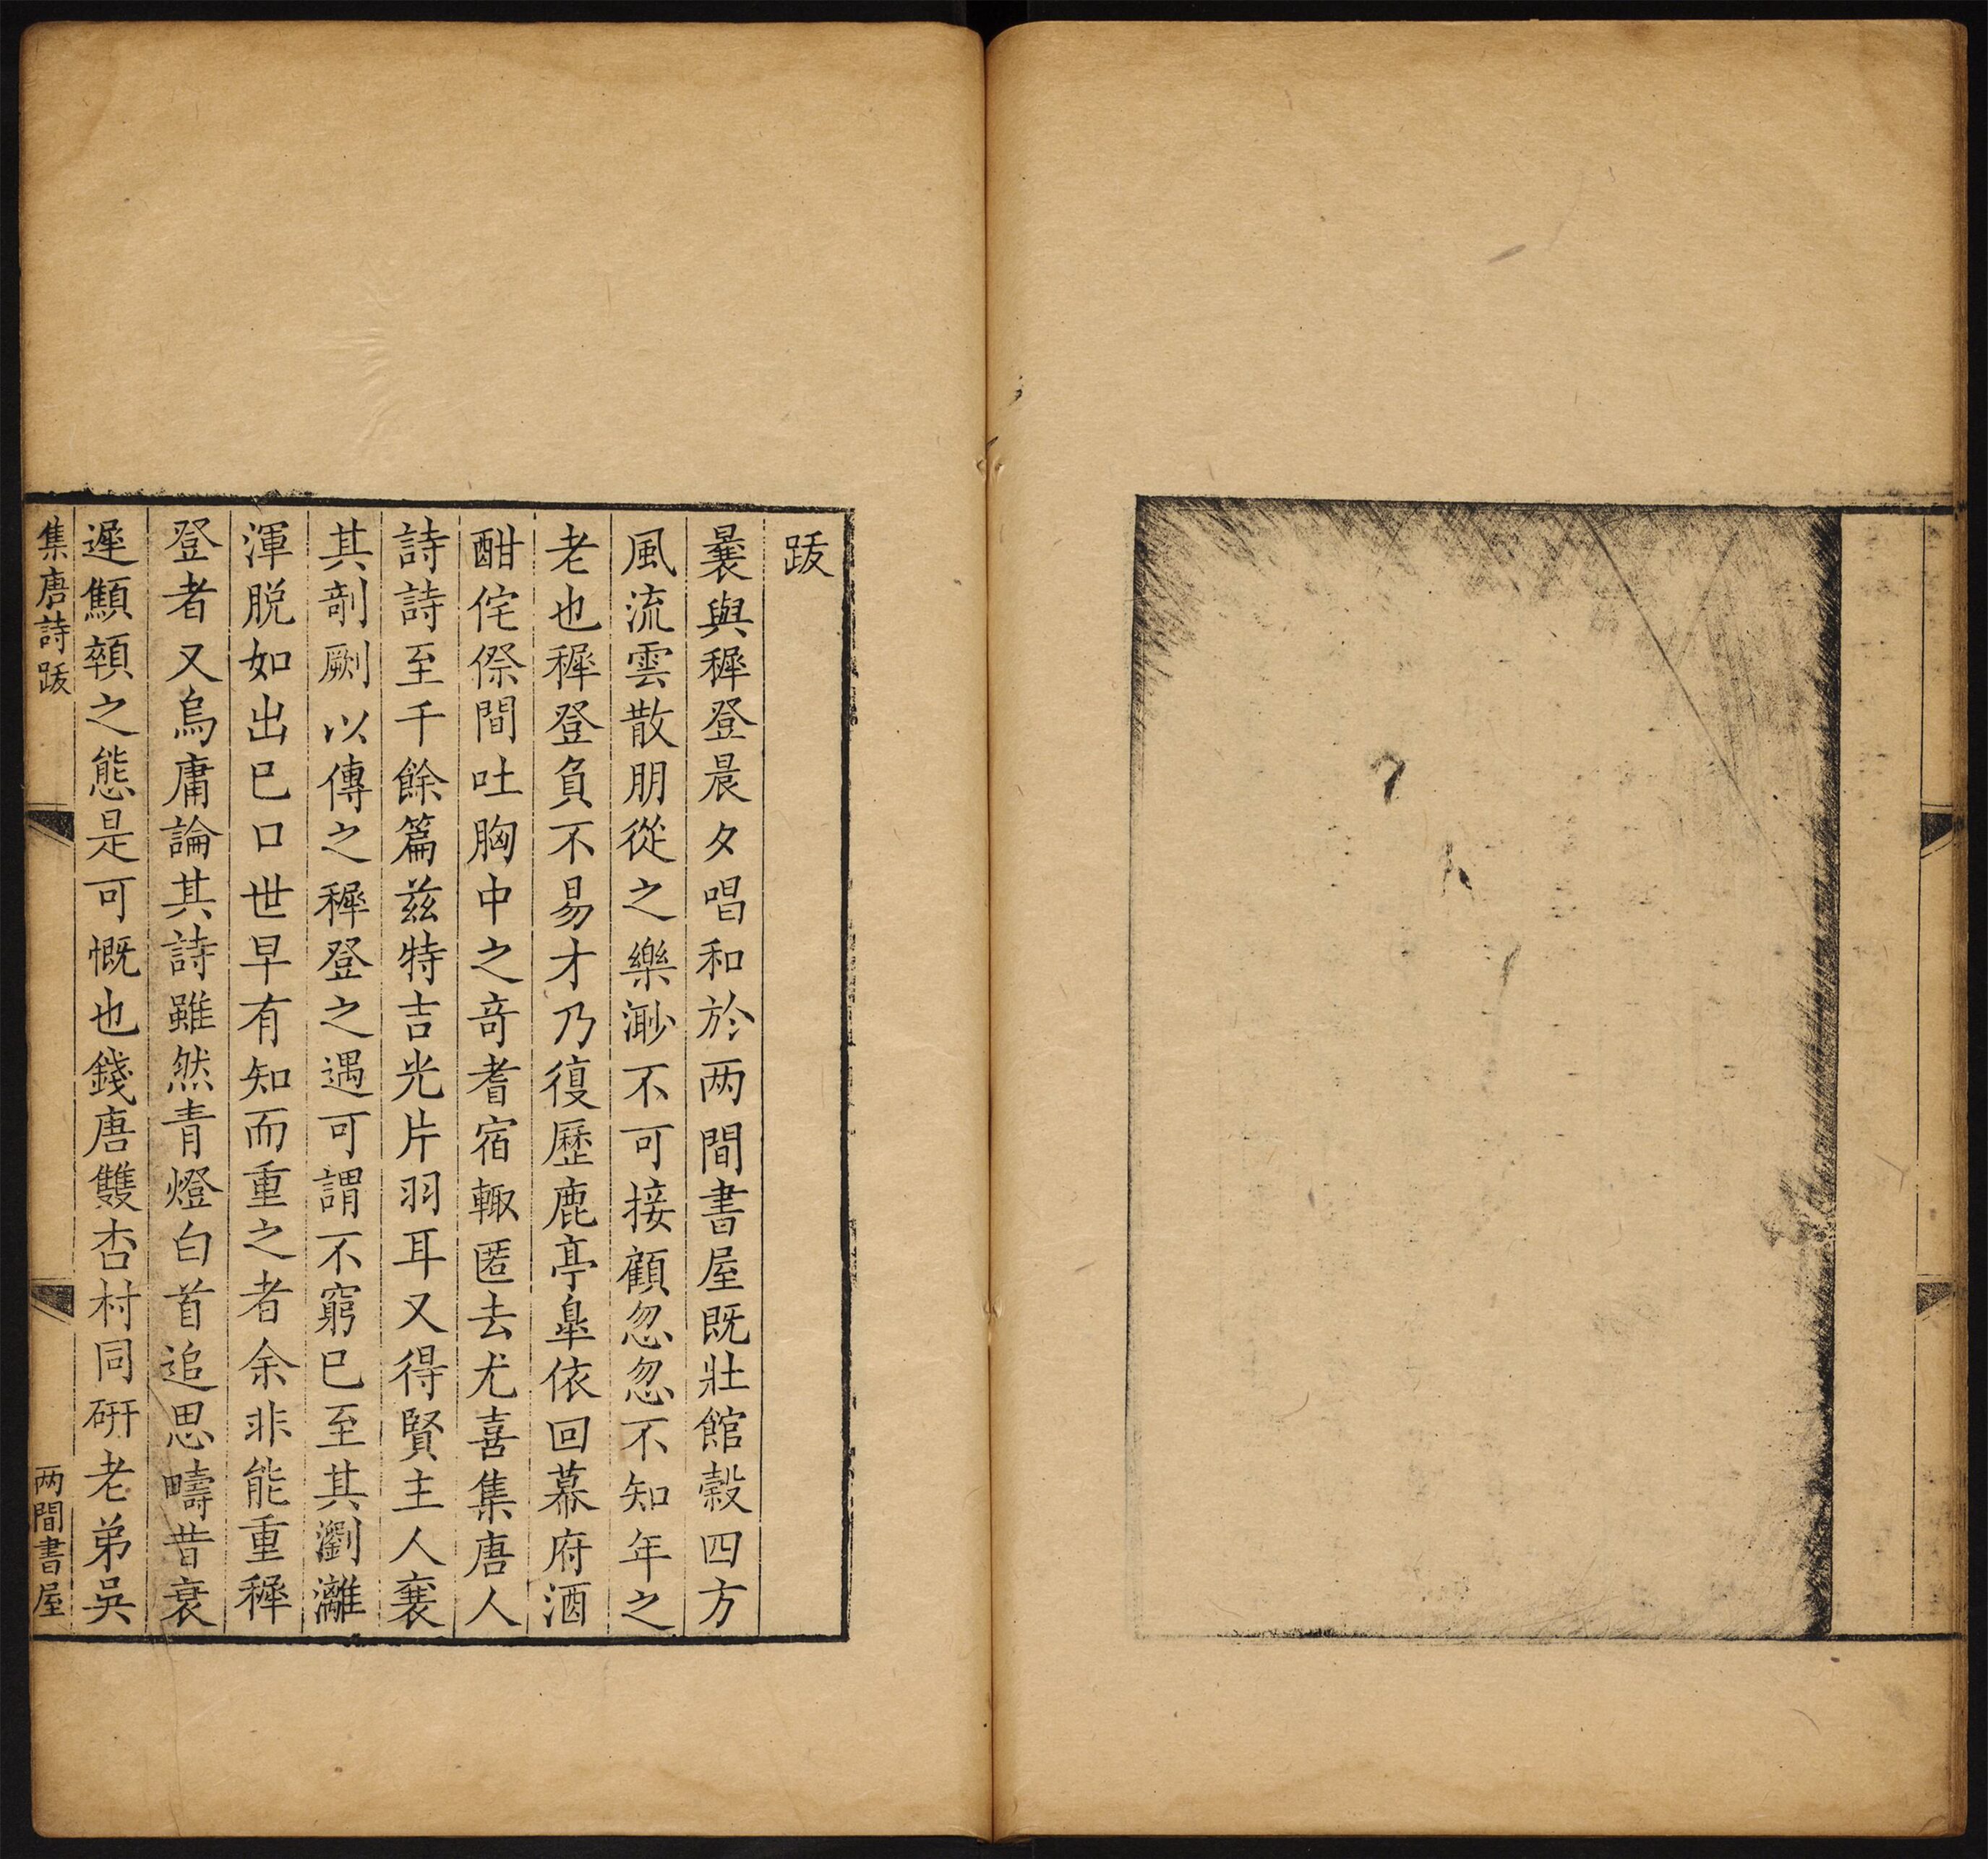 跋
曩與穉登晨夕唱和於两間書屋既壯館穀四方
風流雲散朋從之樂渺不可接顧忽忽不知年之
老也穉登負不易才乃復歷鹿亭臯依回幕府酒
酣侘傺間吐胸中之奇耆宿輒匿去尤喜集唐人
詩詩至千餘篇兹特吉光片羽耳又得賢主人襄
其剞劂以傳之穉登之遇可謂不窮巳至其瀏灕
渾脱如出巳口世早有知而重之者余非能重穉
登者又烏庸論其詩雖然青燈白首追思疇昔衰
遲顦顇之態是可慨也錢唐雙杏村同硏老弟吳
集唐詩跋
两間書屋